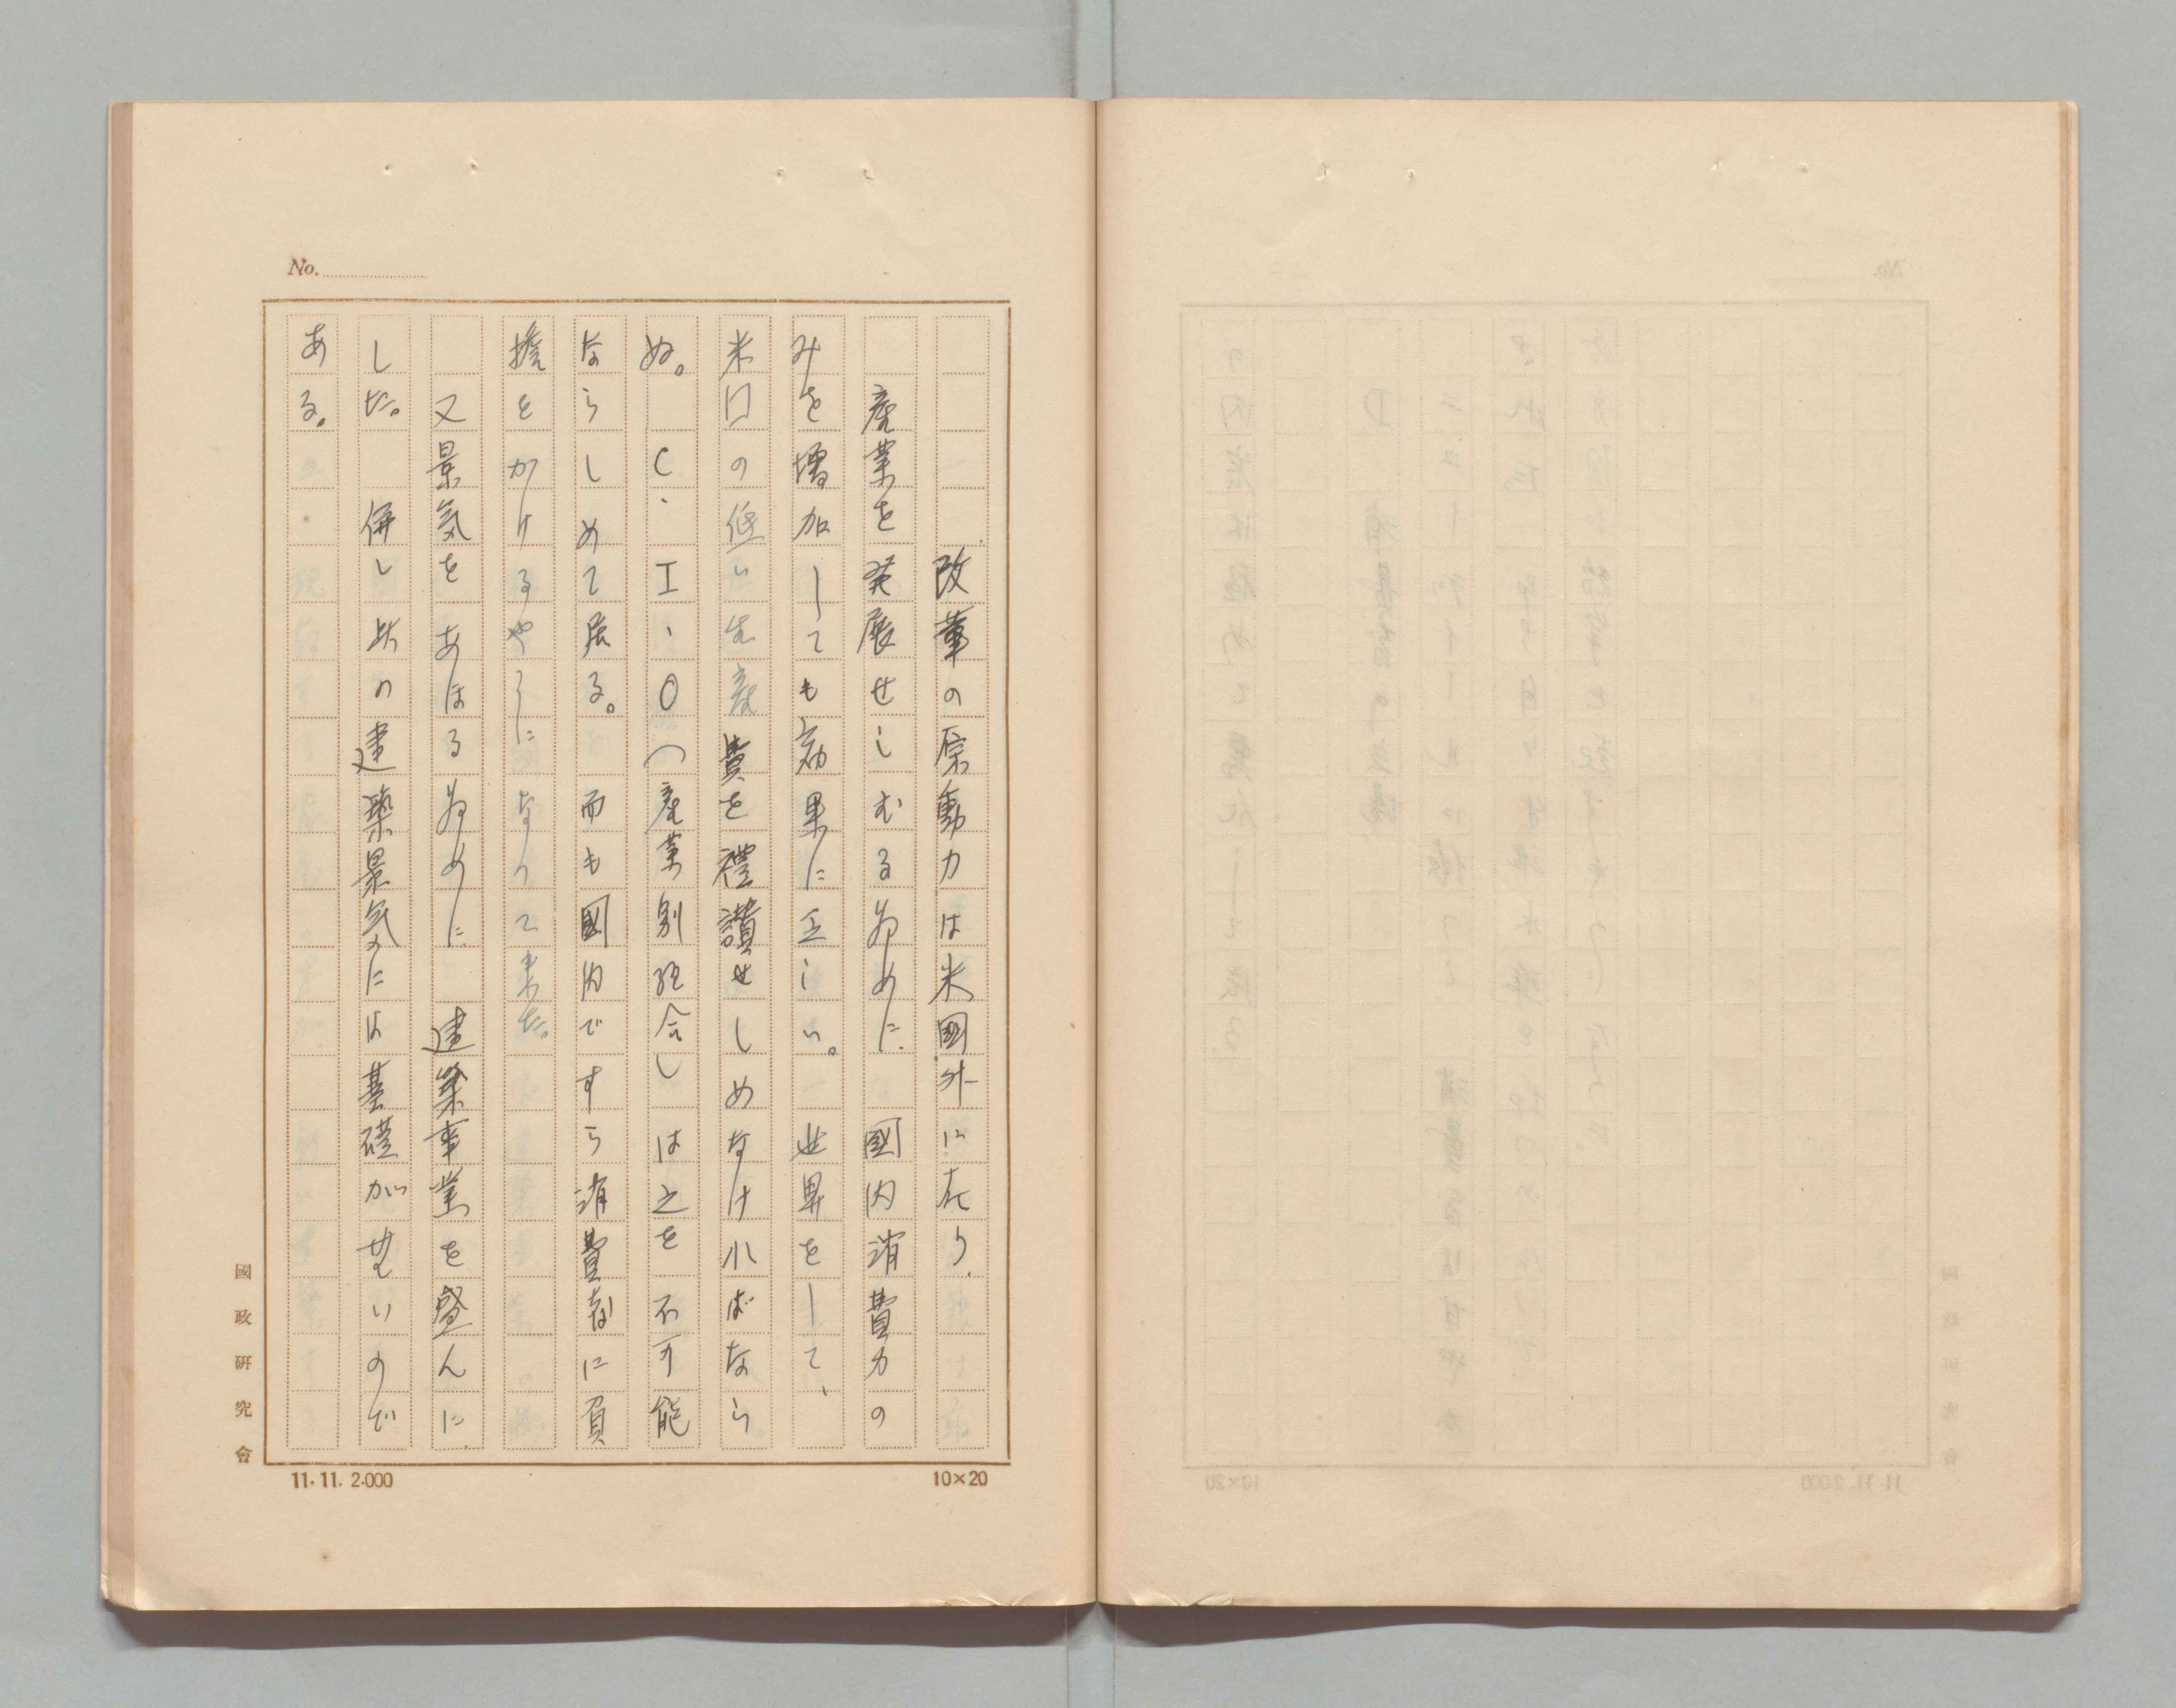 No.
改革の原動力は米國外に在り、
産業を発展せしむる為めに 國内消費力の
みを増加しても効果に乏しい。 世界をして、
米囗の低い生産費を禮讃せしめなければなら
ぬ。 C、I、O(産業別組合)は之を不可能
ならしめて居る。 而も國内ですら消費者に負
擔をかけるやうになつて来た。
又景気をあほる為めに 建築事業を盛んに
した。 併し此の建築景気には基礎が無いので
ある。
國政研究會
11.11. 2.000
10×20